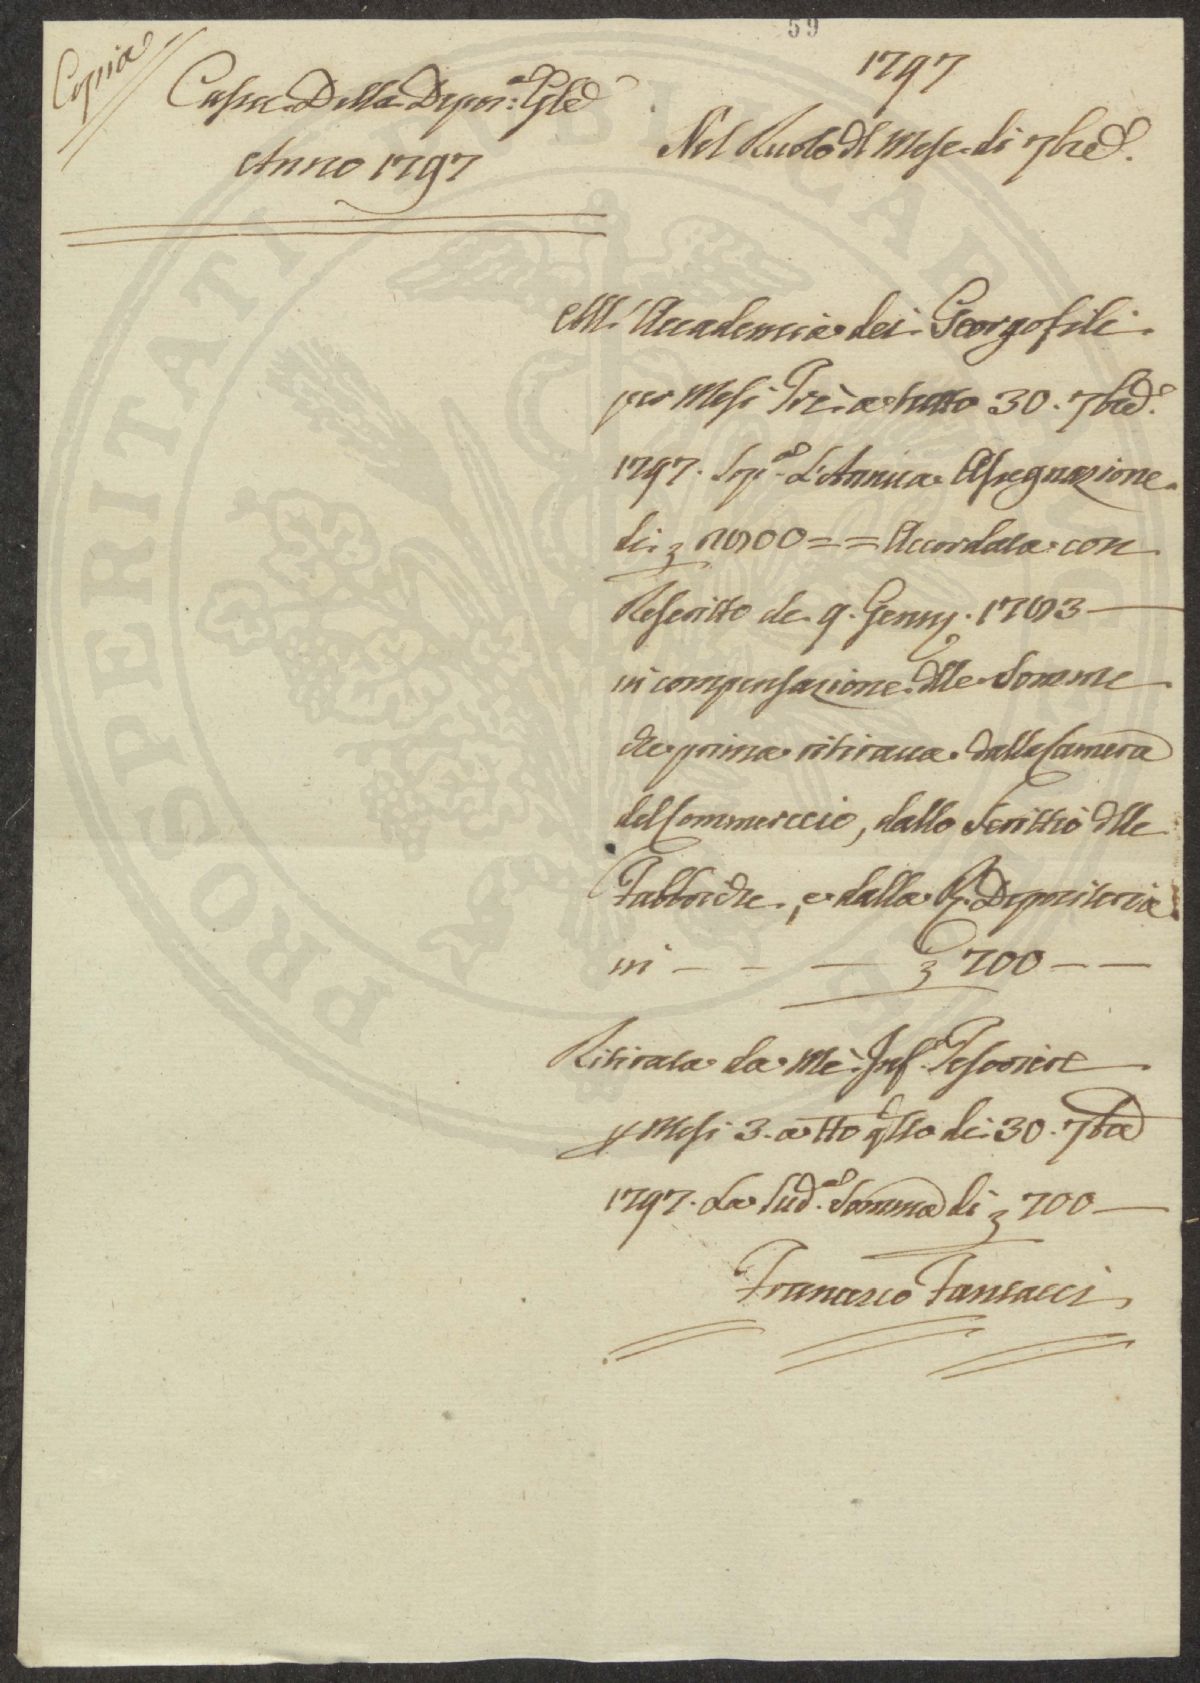 59
Copia
Cassa Della Depos:a Gle
Anno 1797
1797
Nel Ruolo dl Mese di 7bre.
All'Accademia dei Georgofili
per Mesi Tre a tutto 30. 7bre.
1797. Sop.a L'Annua Assegnazione
di 2800 = = Accordata con
Rescritto de 9. Genn. 1783
in compensazione dlle Somme
che prima ritirava dalla Camera
del Commercio, dallo Scrittio dlle
Fabbriche, e dalla R. Depositeria
in - - - 700 - -
Ritirata da Me Inf. Tesoriere
p Mesi 3. a tto qllo di 30. 7bre
1797. La Sud.a Somma di 700
Francesco Fantacci
PROSPERITATI PUBLICAE AUGENDAE